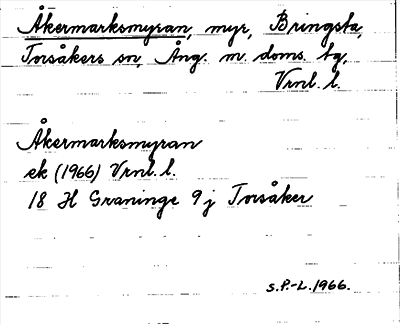 Åkermarksmyran, myr, Bringsta,
Torsåkers sn, Ång. m. doms. tg,
Vrnl. l.
Åkermarksmyran
ek (1966) Vrnl. l.
18 H Graninge 9 j Torsåker
S.P.-L. 1966.